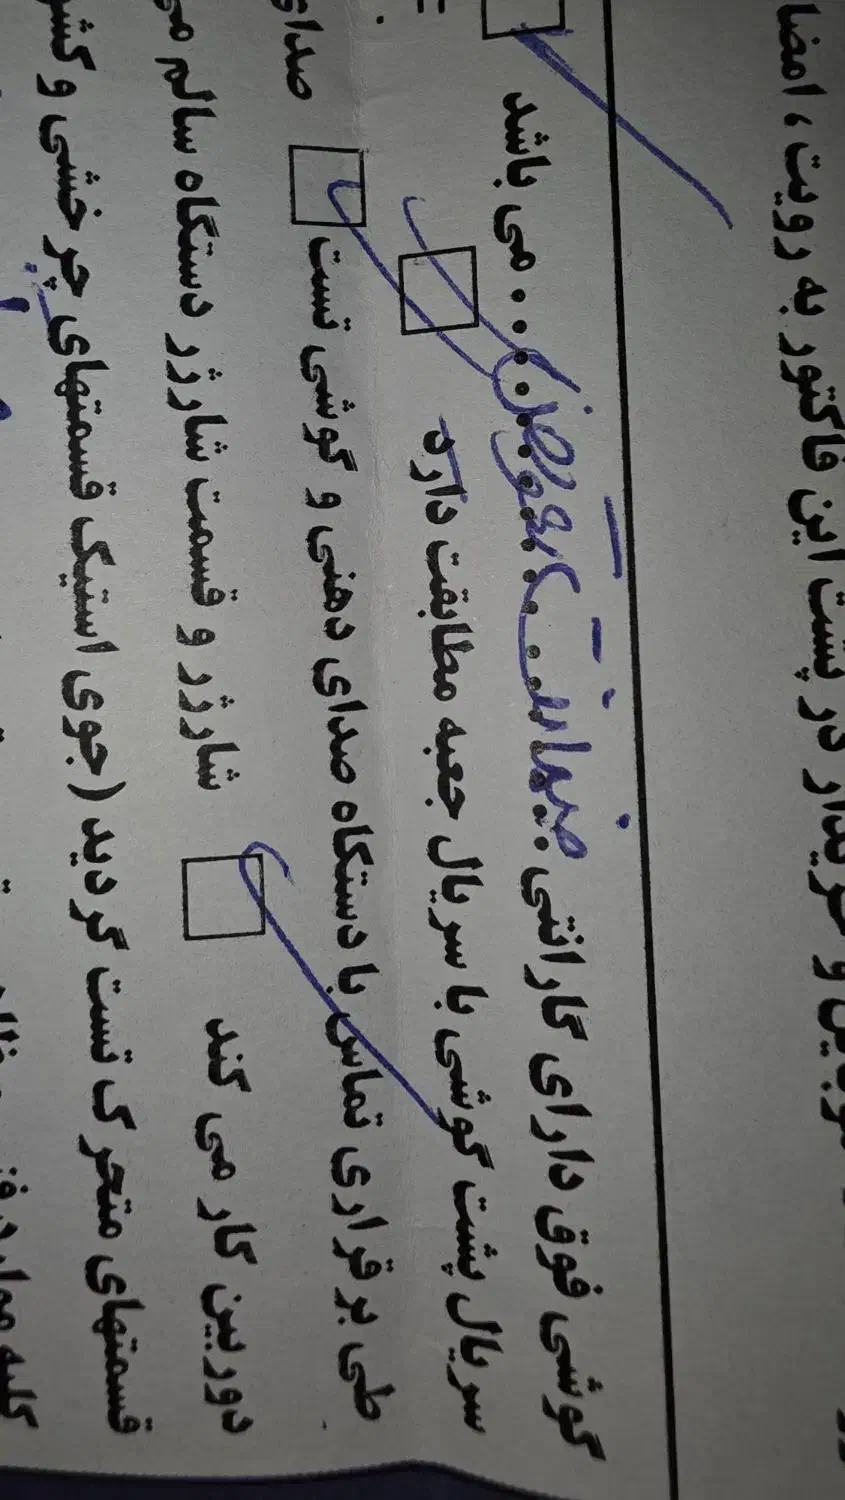 و خریدار در پشت این فاکتور به رویت، امضا
گوشی فوق دارای گارانتی ضمانت تعویض می باشد
سریال پشت گوشی با سریال جعبه مطابقت دارد
طی برقراری تماس با دستگاه صدای دهنی و گوشی تست صدای
دوربین کار می کند شارژر و قسمت شارژر دستگاه سالم
قسمتهای متحرک تست گردید (جوی استیک قسمتهای چرخشی و
کلیه